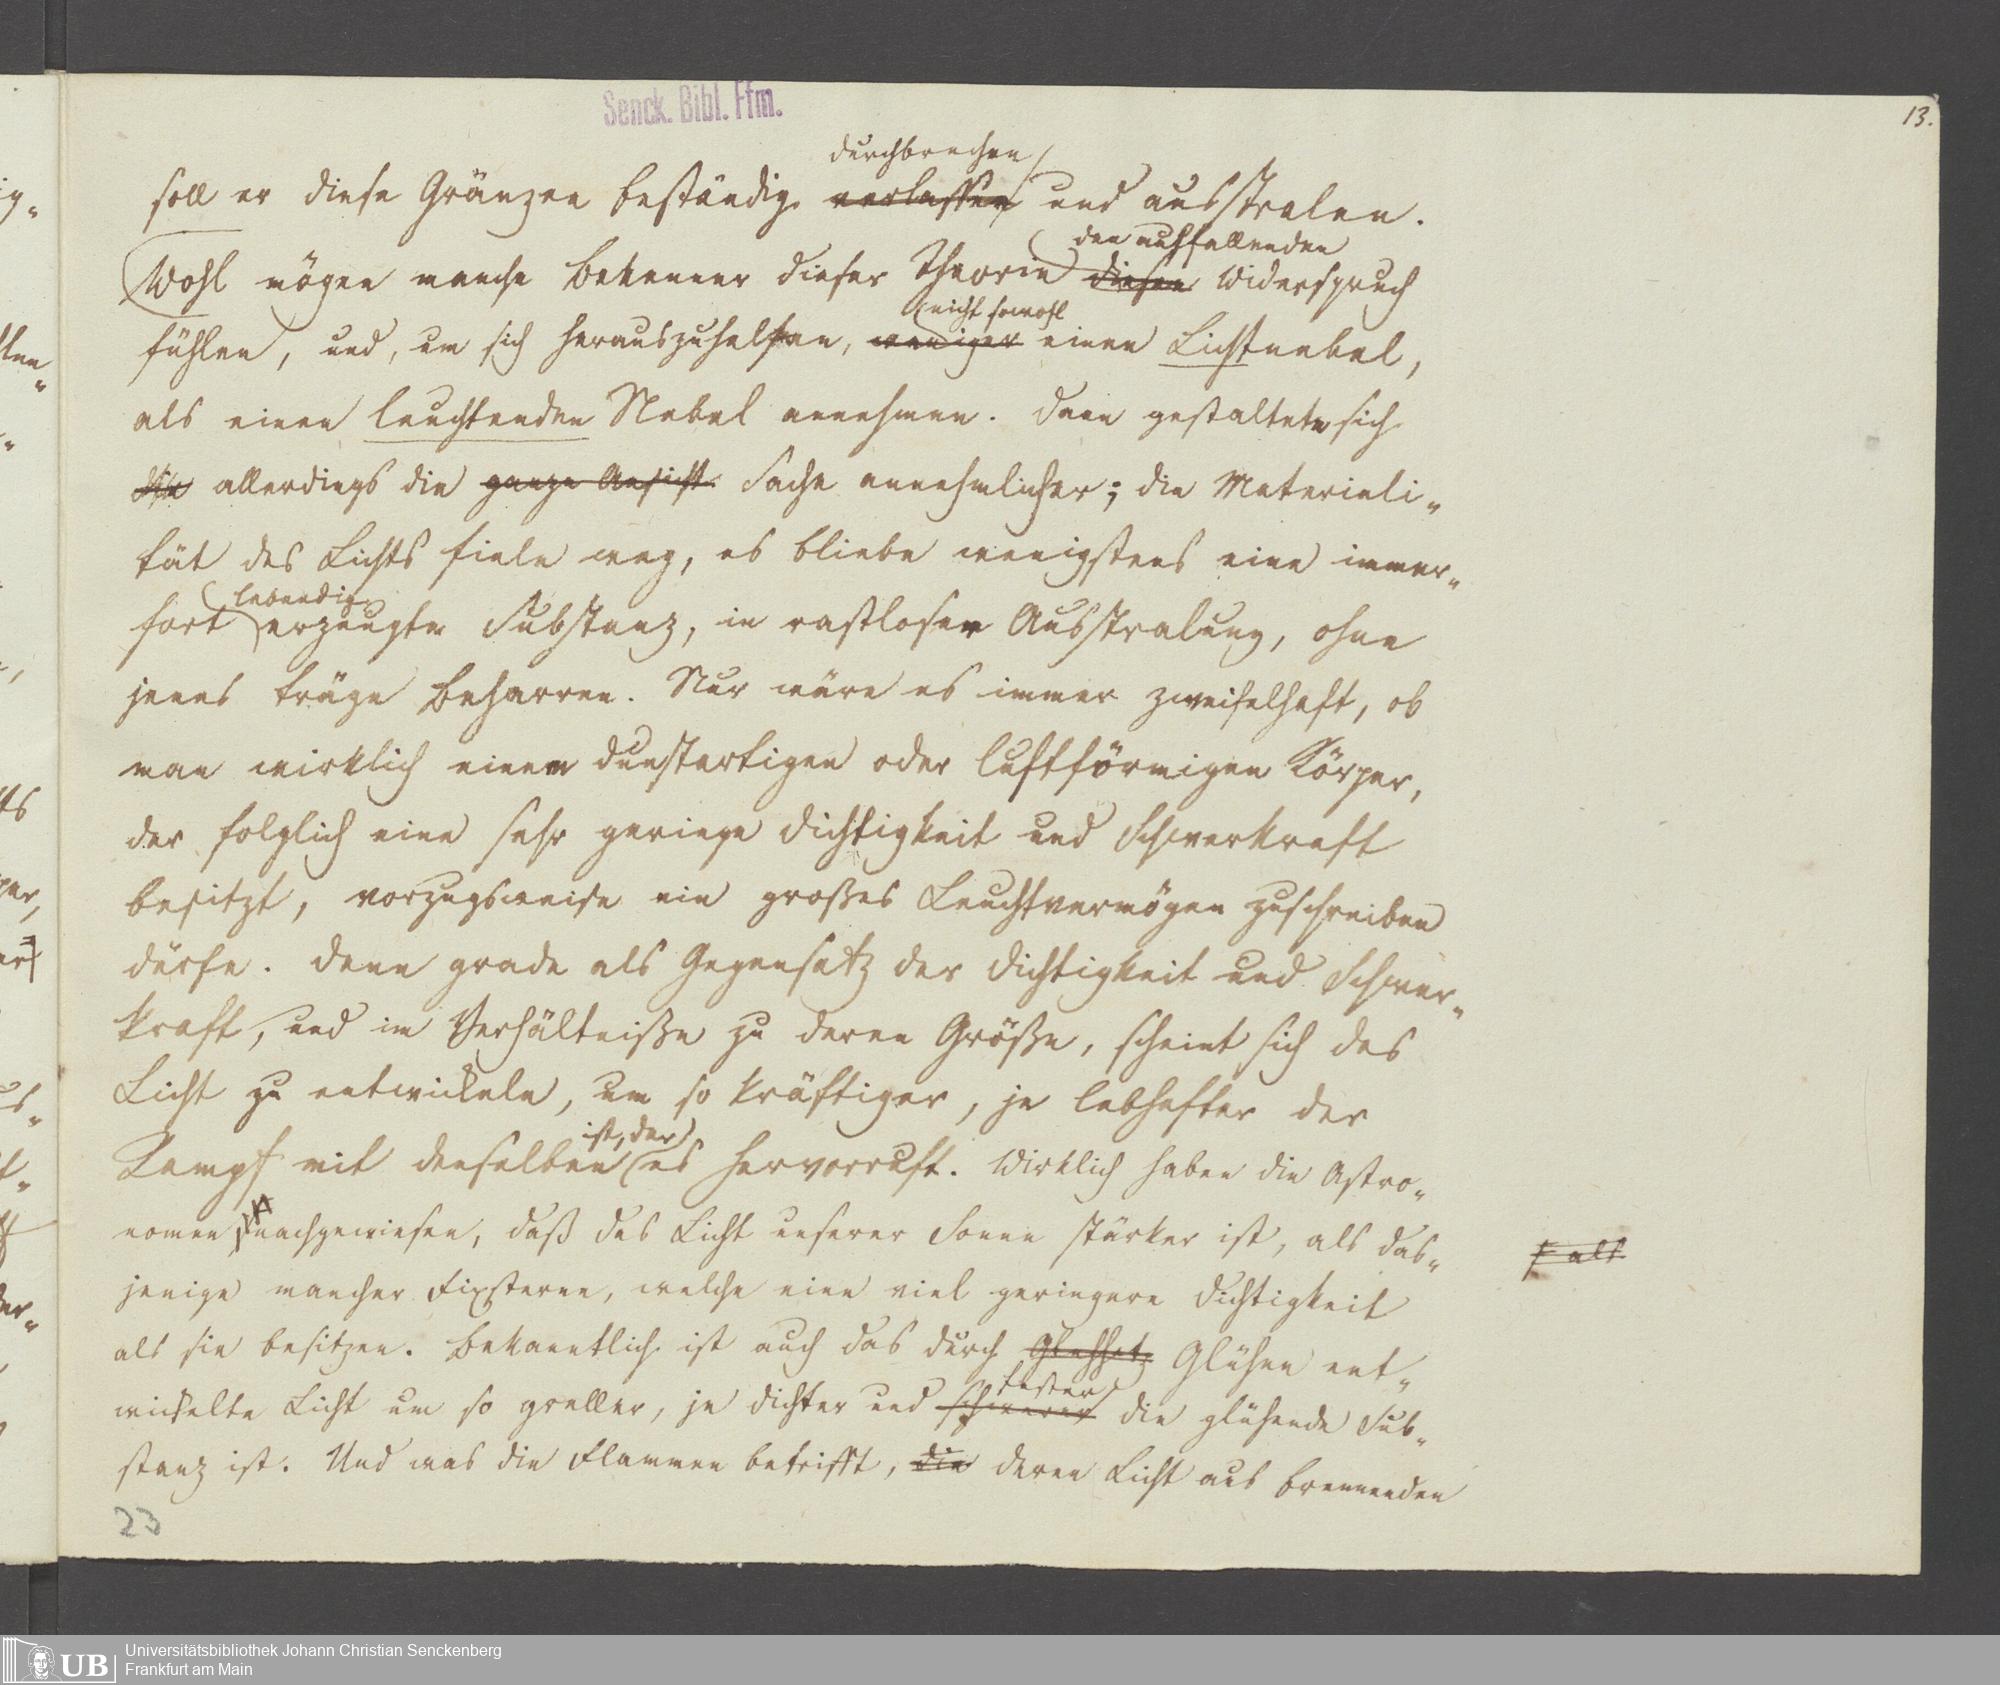 Senck. Bibl. Ffm.
13.
durchbrechen
soll er diese Gränzen beständig verlassen und ausstralen.
den auffallenden
Wohl mögen manche Bekenner dieser Theorie diesen Widerspruch
nicht sowohl
fühlen, und, um sich herauszuhelfen, weniger einen Lichtnebel,
als einen leuchtenden Nebel annehmen. Dann gestaltete sich
allerdings die ganze Ansicht Sache annehmlicher; die Materiali-
tät des Lichts fiele weg, es bliebe wenigstens eine immer-
lebendig
fort erzeugte Substanz, in rastloser Ausstralung, ohne
jenes träge Beharren. Nur wäre es immer zweifelhaft, ob
man wirklich einem dunstartigen oder luftförmigen Körper,
der folglich eine sehr geringe Dichtigkeit und Schwerkraft
besitzt, vorzugsweise ein großes Leuchtvermögen zuschreiben
dürfe. Denn grade als Gegensatz der Dichtigkeit und Schwer-
kraft, und im Verhältniße zu deren Größe, scheint sich das
Licht zu entwickeln, um so kräftiger, je lebhafter der
ist, der
Kampf mit denselben es hervorruft. Wirklich haben die Astro-
nomen nachgewiesen, daß das Licht unserer Sonne stärker ist, als das-
als
jenige mancher Fixsterne, welche eine viel geringere Dichtigkeit
als sie besitzen. Bekanntlich ist auch das durch Glühen ent-
fester
wickelte Licht um so greller, je dichter und schwerer die glühende Sub-
stanz ist. Und was die Flammen betrifft, die deren Licht aus brennenden
23
UB
Universitätsbibliothek Johann Christian Senckenberg
Frankfurt am Main